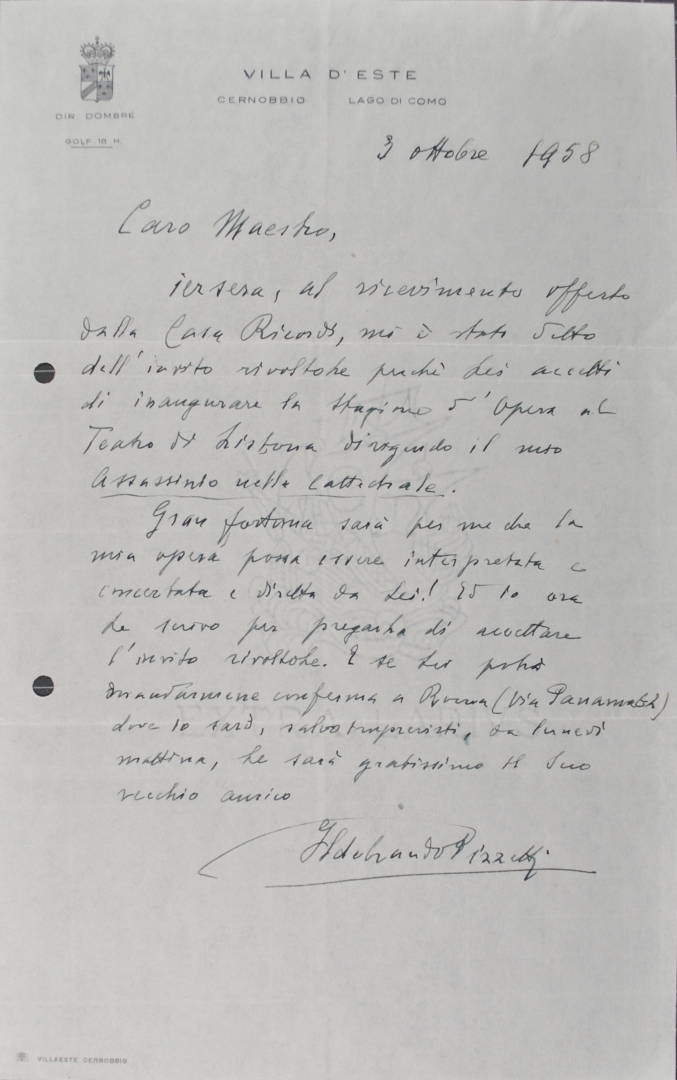 VILLA D'ESTE
CERNOBBIO LAGO DI COMO
DIR. DOMBRE
GOLF 18 H.
3 ottobre 1958
Caro Maestro,
iersera, al ricevimento offerto
dalla Casa Ricordi, mi è stato detto
dell'invito rivoltole perchè Lei accetti
di inaugurare la stagione d'Opera al
Teatro di Lisbona dirigendo il mio
Assassinio nella Cattedrale.
Gran fortuna sarà per me che la
mia opera possa essere interpretata e
concertata e diretta da Lei! Ed io ora
Le scrivo per pregarla di accettare
l'invito rivoltole. E se Lei potrà
mandarmene conferma a Roma (Via Panama
dove io sarò, salvo imprevisti, da lunedì
mattina, Le sarà gratissimo il Suo
vecchio amico
Ildebrando Pizzetti
VILLAESTE CERNOBBIO